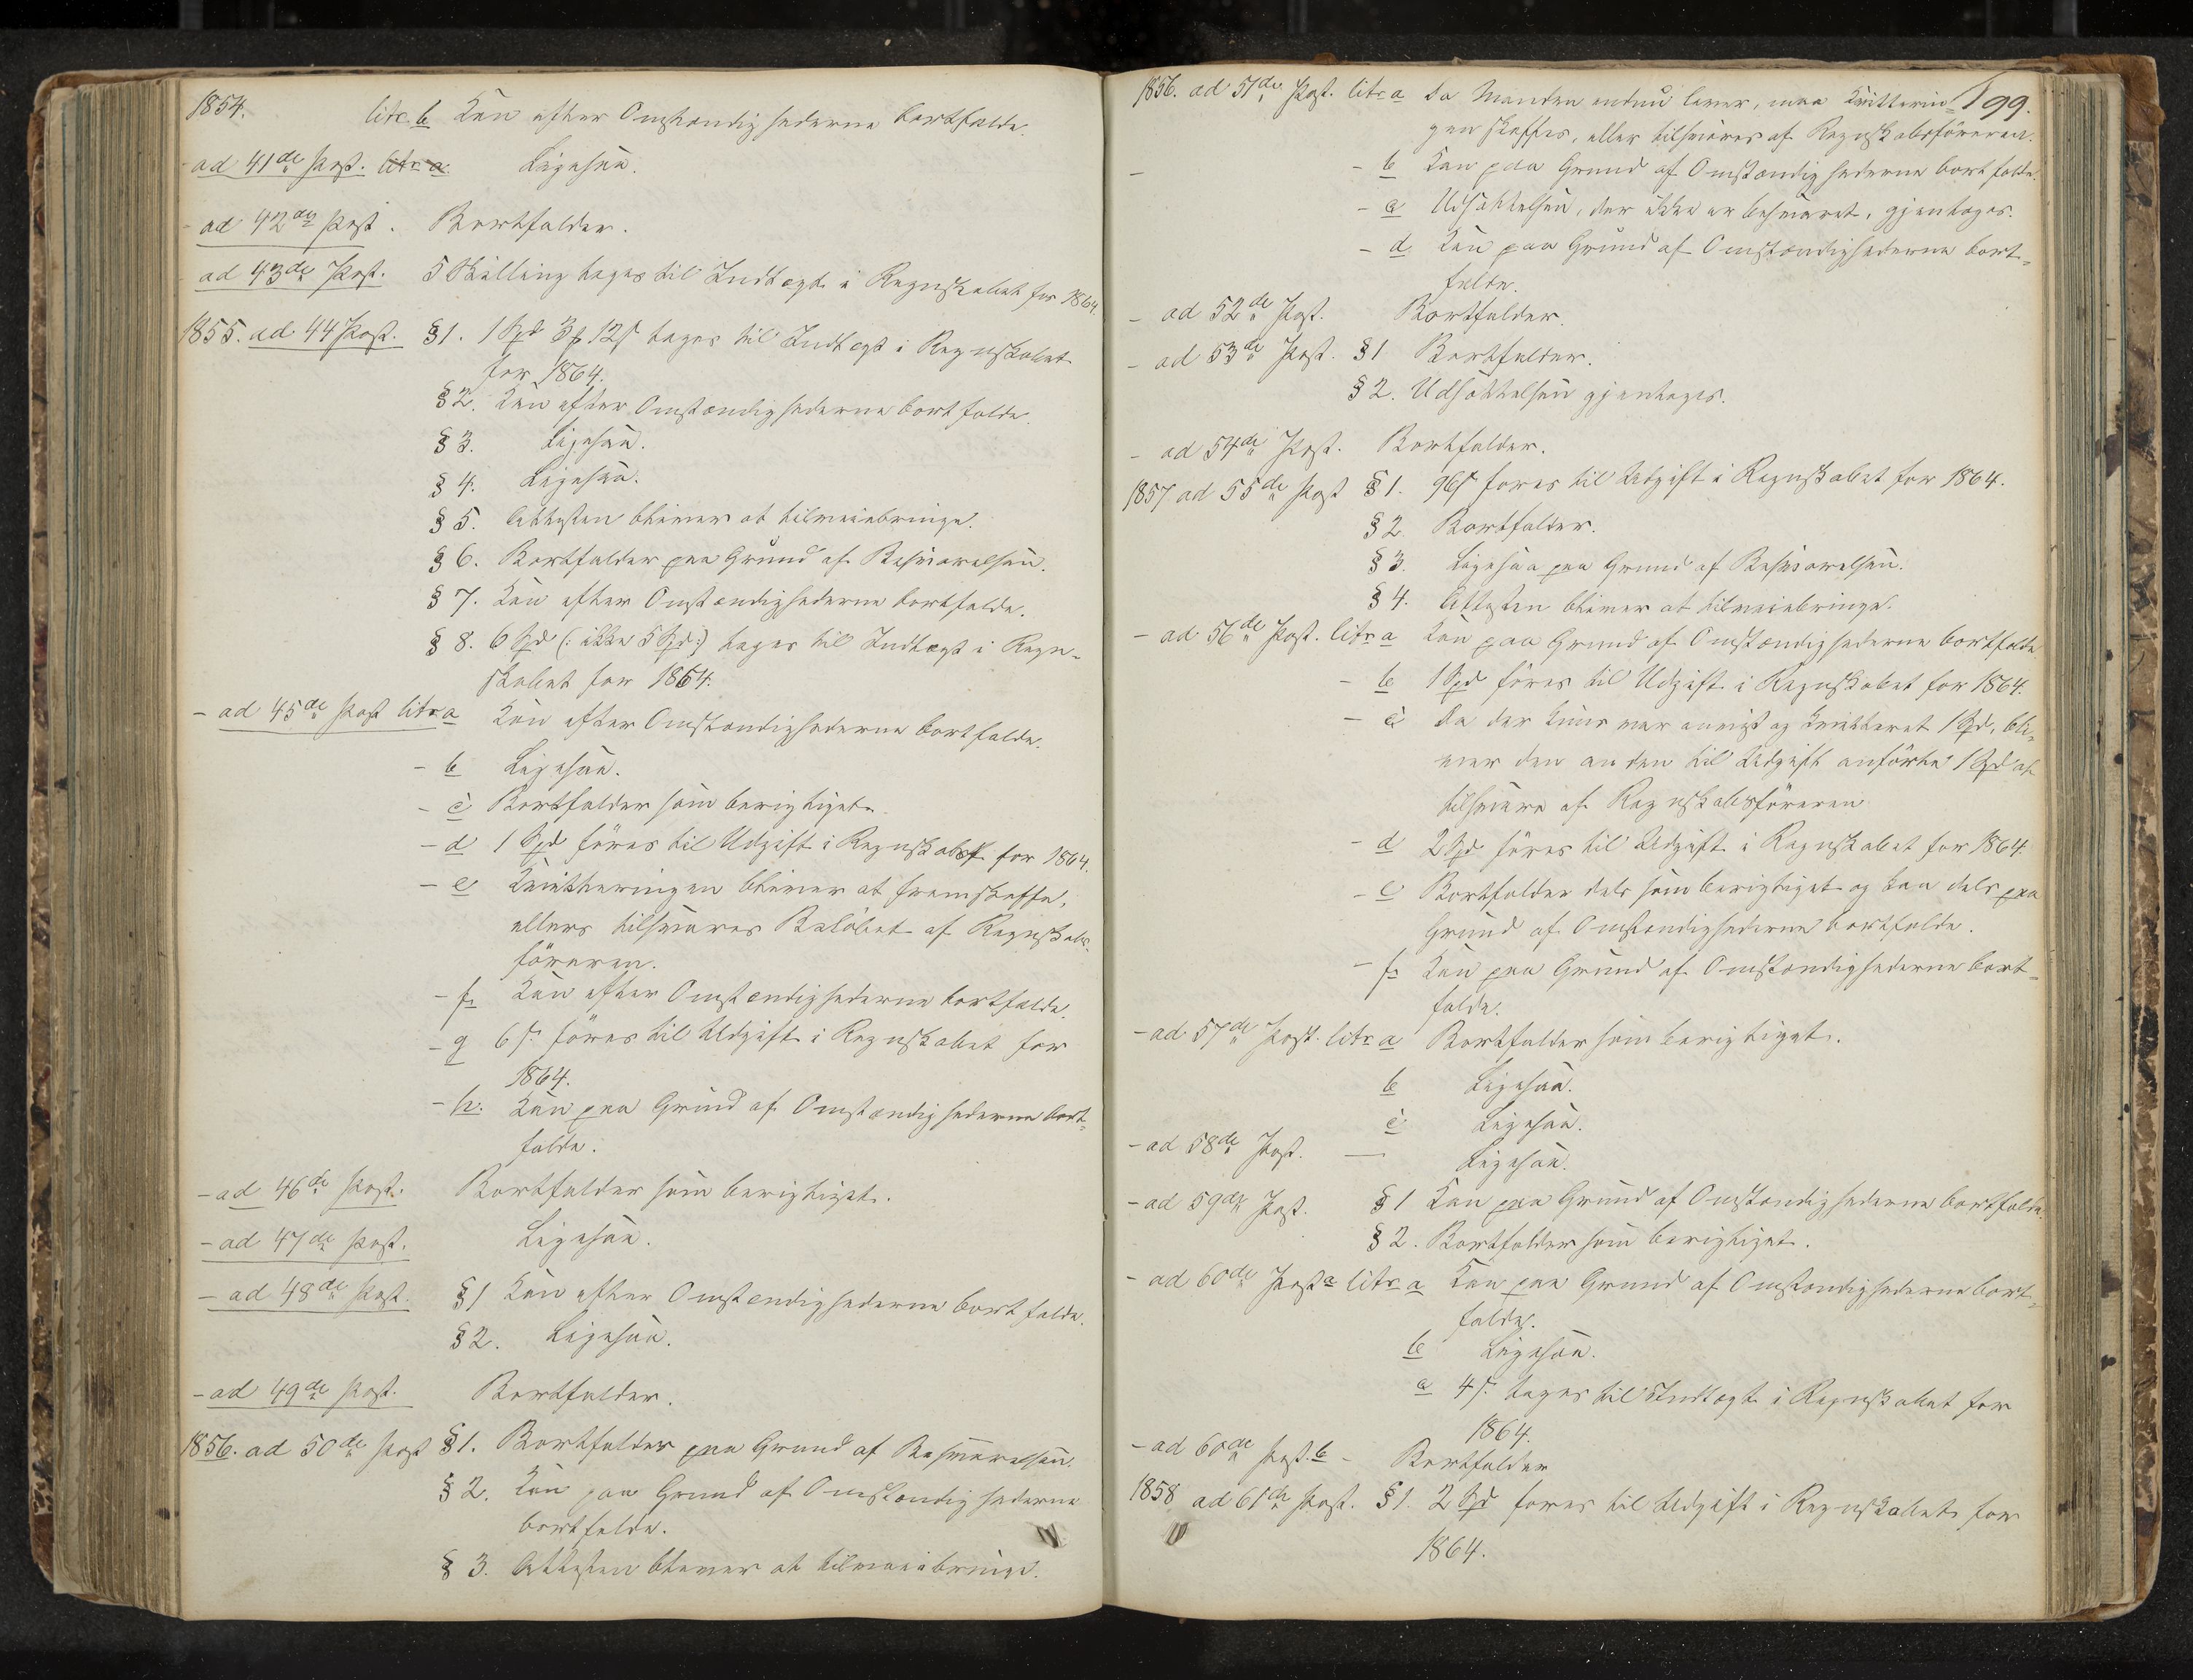 1854. litr. b Kan efter Omstændighederne bortfalde.
- ad 41de Post. litr a Ligesaa.
- ad 42de Post. Bortfalder.
- ad 43de Post. 5 Skilling tages til Indtægt i Regnskabet for 1864.
1855. ad 44 Post. § 1. 1 Spd 3 ₰ 12 s tages til Indtægt i Regnskabet
for 1864.
§ 2. Kan efter Omstændighederne bortfalde.
§ 3. Ligesaa.
§ 4. Ligesaa.
§ 5. Attesten bliver at tilveiebringe.
§ 6. Bortfalder paa Grund af Besvarelsen.
§ 7. Kan efter Omstændighederne bortfalde.
§ 8. 6 Spd (: ikke 5 Spd :) tages til Indtægt i Regn-
skabet for 1864.
- ad 45de Post litr a Kan efter Omstændighederne bortfalde.
- b Ligesaa.
- c Bortfalder som berigtiget.
- d 1 Spd föres til Udgift i Regnskabet for 1864.
- e Kvitteringen bliver at fremskaffe,
ellers tilsvares Belöbet af Regnskabs-
föreren.
- f Kan efter Omstændighederne bortfalde.
- g 6 s. föres til Udgift i Regnskabet for
1864.
- h. Kan paa Grund af Omstændighederne bort-
falde.
- ad 46de Post. Bortfalder som berigtiget.
- ad 47de Post. Ligesaa.
- ad 48de Post. § 1 Kan efter Omstændighederne bortfalde.
§ 2. Ligesaa.
- ad 49de Post. Bortfalder.
1856. ad 50de Post § 1. Bortfalder paa Grund af Besvarelsen.
§ 2. Kan paa Grund af Omstændighederne
bortfalde.
§ 3. Attesten bliver at tilveiebringe.
199.
1856. ad 51de Post. litr a Da Manden endnu lever, maa Kvitterin-
gen skaffes, eller tilsvares af Regnskabsföreren.
- - b Kan paa Grund af Omstændighederne bortfalde.
- c Udsættelsen, der ikke er besvaret, gjentages.
- d Kan paa Grund af Omstændighederne bort-
falde.
- ad 52de Post. Bortfalder.
- ad 53de Post. § 1 Bortfalder.
§ 2. Udsættelsen gjentages.
- ad 54de Post. Bortfalder.
1857 ad 55de Post § 1. 96 s föres til Udgift i Regnskabet for 1864.
§ 2. Bortfalder.
§ 3. Ligesaa paa Grund af Besvarelsen.
§ 4. Attesten bliver at tilveiebringe.
- ad 56de Post. litr a Kan paa Grund af Omstændighederne bortfalde.
- b 1 Spd föres til Udgift i Regnskabet for 1864.
- c Da der kuns var anvist og kvitteret 1 Spd, bli-
ver den anden til Udgift anförte 1 Spd at
tilsvare af Regnskabsföreren
- d 2 Spd föres til Udgift i Regnskabet for 1864.
- e Bortfalder dels som berigtiget og kan dels paa
Grund af Omstændighederne bortfalde.
- f. Kan paa Grund af Omstændighederne bort-
falde.
- ad 57de Post. litr a Bortfalder som berigtiget.
b Ligesaa.
c Ligesaa.
- ad 58de Post. — Ligesaa.
- ad 59de Post. § 1 Kan paa Grund af Omstændighederne bortfalde.
§ 2. Bortfalder som berigtiget.
- ad 60de Post a litr a Kan paa Grund af Omstændighederne bort-
falde.
b Ligesaa.
c 4 s. tages til Indtægt i Regnskabet for
1864.
- ad 60de Post. b - Bortfalder
1858 ad 61de Post. § 1. 2 Spd föres til Udgift i Regnskabet for
1864.